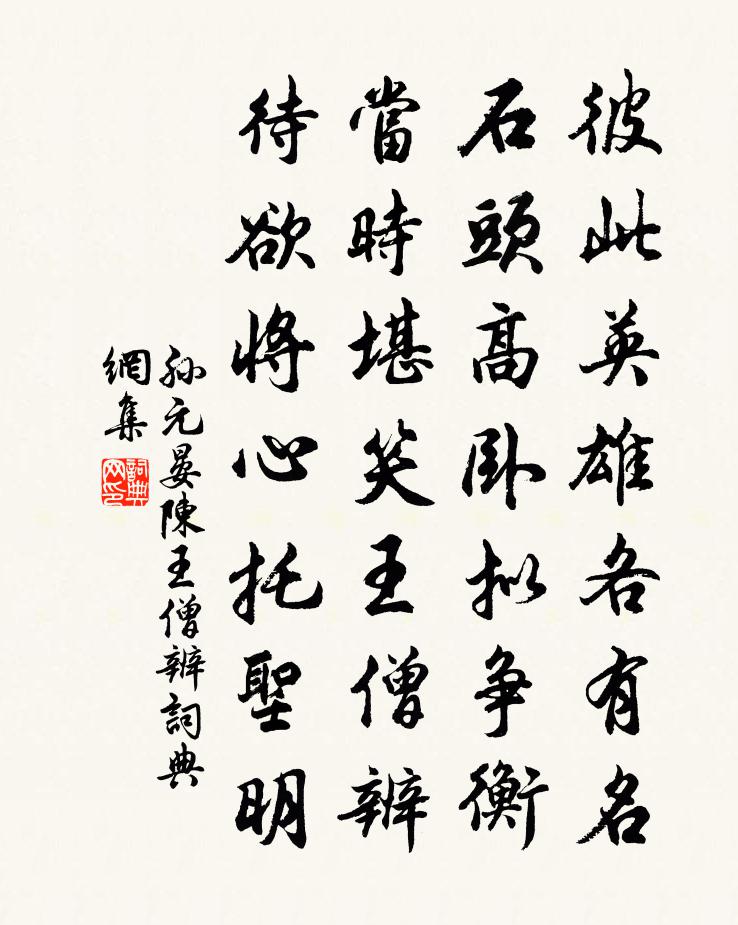 彼此英雄各有名
石頭高卧拟争衡
當時堪笑王僧辨
待欲將心托聖明
孙元晏陳王僧辨詞典
網集
詞典网印